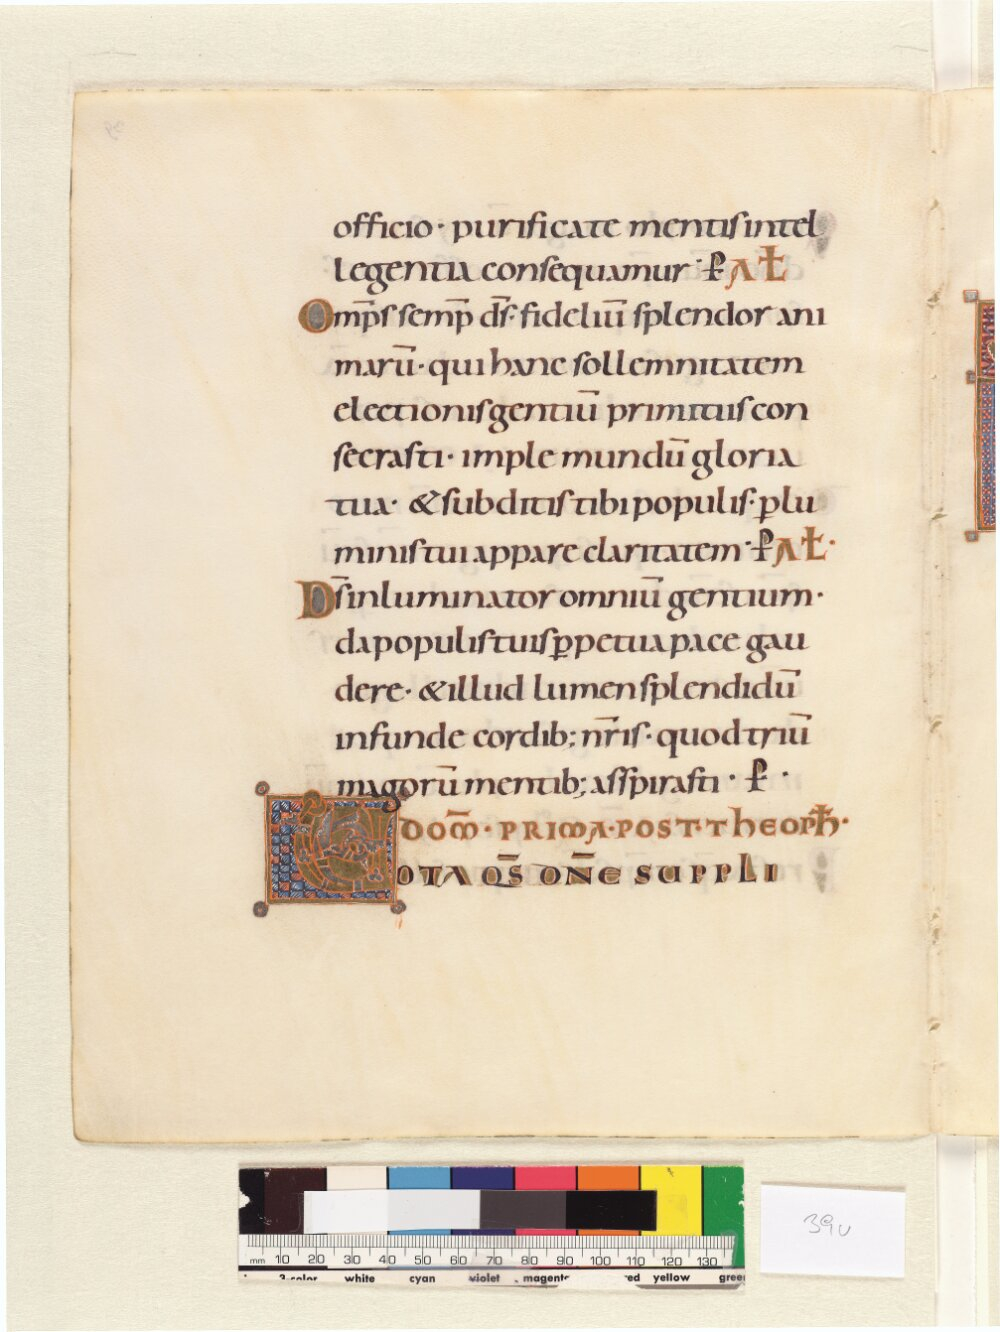 officio · purificate mentis intel
legentia consequamur · P̄ AŁ
Omp̄s semp̄ ds̄ · fideliū splendor ani
marū · qui hanc sollemnitatem
electionis gentiū primitiis con
secrasti · imple mundū gloria
tua · & subditis tibi populis · p̲ lu
minis tui appare claritatem · P̄ AŁ ·
Ds̄ inluminator omniū gentium ·
da populis tuis p̲petua pace gau
dere · & illud lumen splendidū
infunde cordib; nr̄is · quod triū
magorū mentib; asspirasti · P̄ ·
DOM̄ · PRIMA · POST · THEOPH̄ ·
VOTA QS̄ DN̄E SUPPLI
39v
mm 10 20 30 40 50 60 70 80 90 100 110 120 130
3-color white cyan violet magenta red yellow green